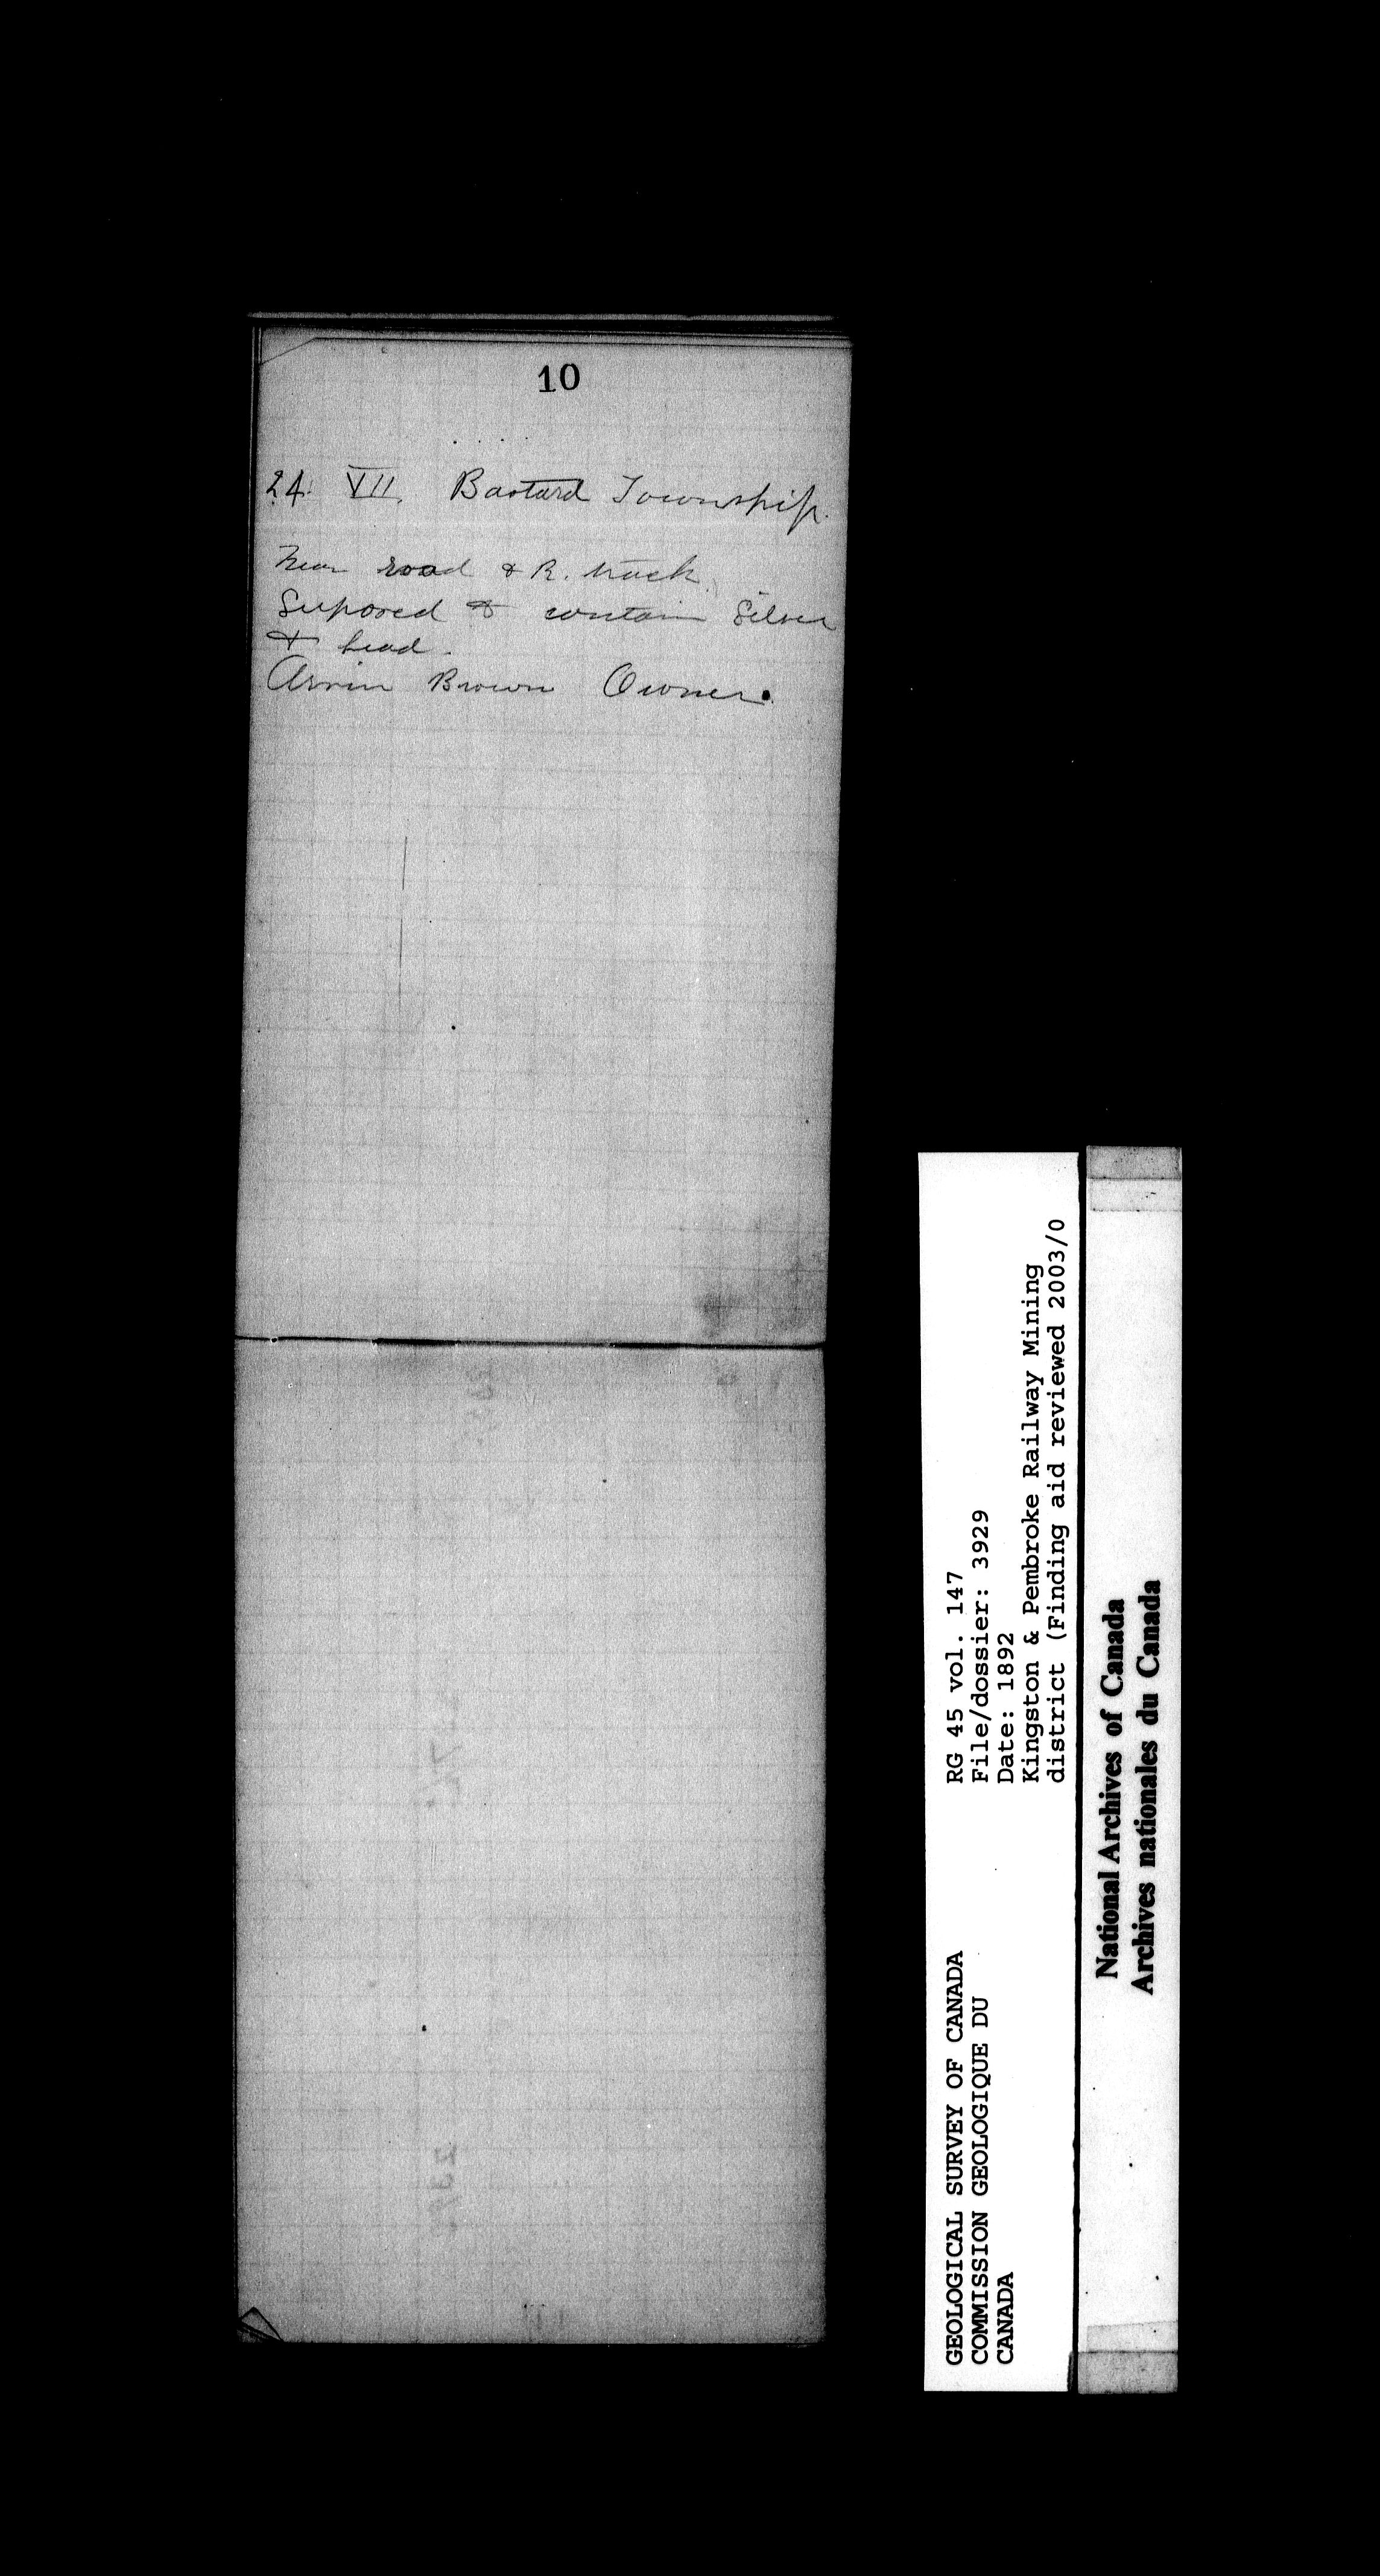 10
24. VII. Bastard Township.
Near road & R. track.
Suposed to contain Silver
& Lead.
Arvin Brown Owner.
GEOLOGICAL SURVEY OF CANADA
COMMISSION GEOLOGIQUE DU
CANADA
RG 45 vol. 147
File/dossier: 3929
Date: 1892
Kingston & Pembroke Railway Mining
district (Finding aid reviewed 2003/0
National Archives of Canada
Archives nationales du Canada